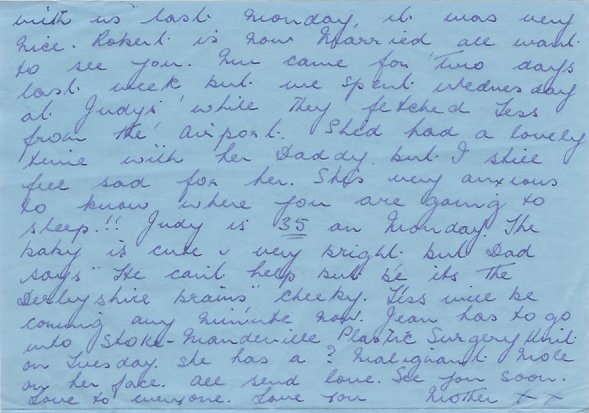 with us last Monday, it was very
nice. Robert is now Married all want
to see you. Mur came for Two days
last week but we spent Wednesday
at Judy's while they fetched Tess
from the airport. She'd had a lovely
time with her Daddy but I still
feel sad for her. She's very anxious
to know where you are going to
sleep!!! Judy is 35 on Monday. The
baby is cute & very bright but Dad
says "He can't help but be its the
Derbyshire brains" cheeky. Tess will be
coming any minute now. Jean has to go
into Stoke-Mandeville Plastic Surgery Unit
on Tuesday. She has a ? Malignant Mole
on her face. All send love. See you soon.
Love to everyone. Love you Mother x x